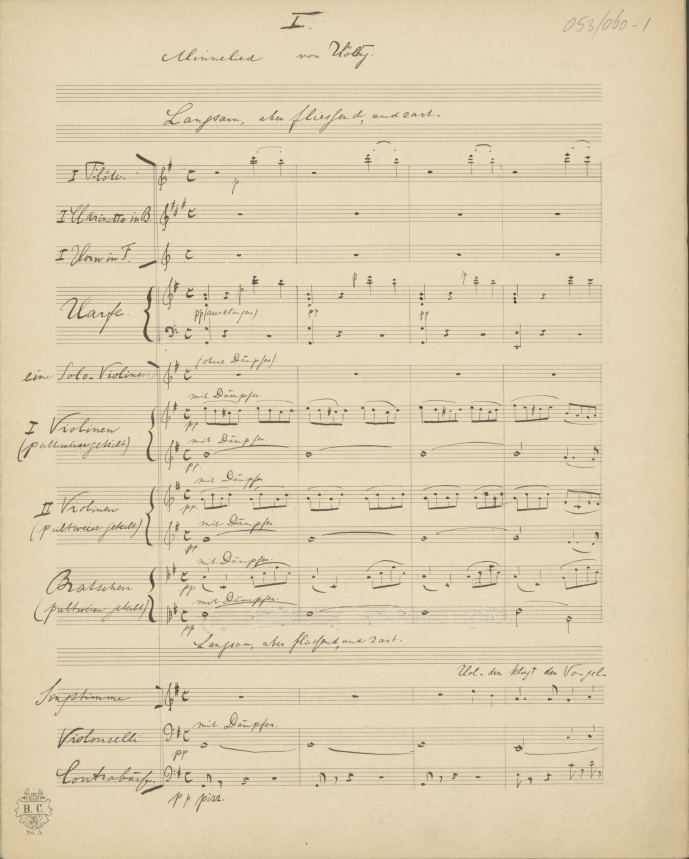 I.
053/060-1
Minnelied von Hölty.
Langsam, aber fliessend, und zart.
I Flöte.
p.
I Clarinetto in B.
I Horn in F.
Harfe.
p. p p
pp (ausklingen) pp pp
(ohne Dämpfer).
eine Solo-Violine
mit Dämpfer.
I Violinen
pp
(pultweise geteilt)
mit Dämpfer.
pp.
mit Dämpfer
II Violinen
pp.
(pultweise geteilt)
mit Dämpfer
pp
mit Dämpfer.
Bratschen
pp
(pultweise geteilt)
mit Dämpfer.
pp
Langsam, aber fliessend, und zart.
Hol-der klingt der Vo-gel-
Singstimme
mit Dämpfer.
Violoncelli
pp
Contrabässe.
pp pizz.
B. C.
No. 5.